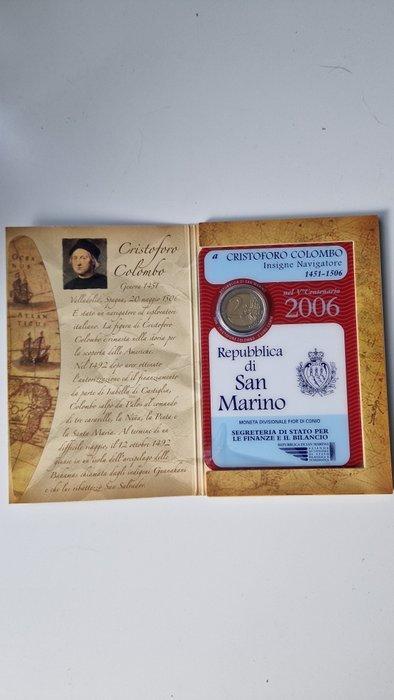 OCEA
NUS
ATLAN
TICUS
Cristoforo
Colombo
Genova 1451
Valladolid, Spagna, 20 maggio 1506
È stato un navigatore ed esploratore
italiano. La figura di Cristoforo
Colombo è rimasta nella storia per
la scoperta delle Americhe.
Nel 1492 dopo aver ottenuto
l'autorizzazione ed il finanziamento
da parte di Isabella di Castiglia,
Colombo salpò da Palos al comando
di tre caravelle, la Niña, la Pinta e
la Santa Maria. Al termine di un
difficile viaggio, il 12 ottobre 1492
giunse in un'isola dell'arcipelago delle
Bahamas chiamata dagli indigeni Guanahani
e che lui ribattezzò San Salvador.
a CRISTOFORO COLOMBO
Insigne Navigatore
1451-1506
nel V° Centenario
2006
2
Repubblica
di
San
Marino
MONETA DIVISIONALE FIOR DI CONIO
SEGRETERIA DI STATO PER
LE FINANZE E IL BILANCIO
REPUBBLICA DI SAN MARINO